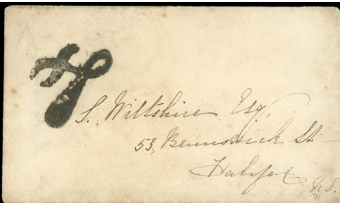 S. Wiltshire Esq
53, Brunswick St
Halifax
N.S.